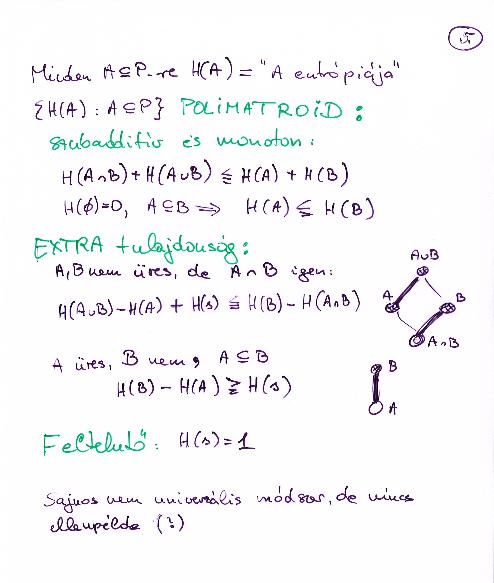 5
Minden A⊆P-re H(A) = "A entrópiája"
{H(A) : A⊆P} POLIMATROID :
szubadditív és monoton :
H(A∩B)+H(A∪B) ≦ H(A) + H(B)
H(∅)=0, A⊆B ⟹ H(A) ≦ H(B)
EXTRA tulajdonság :
A,B nem üres, de A∩B igen:
H(A∪B)-H(A) + H(s) ≦ H(B)-H(A∩B)
A∪B
A
B
A∩B
A üres, B nem, A⊆B
H(B) - H(A) ≧ H(s)
B
A
Feltehető : H(s) = 1
Sajnos nem univerzális módszer, de nincs
ellenpélda (?)